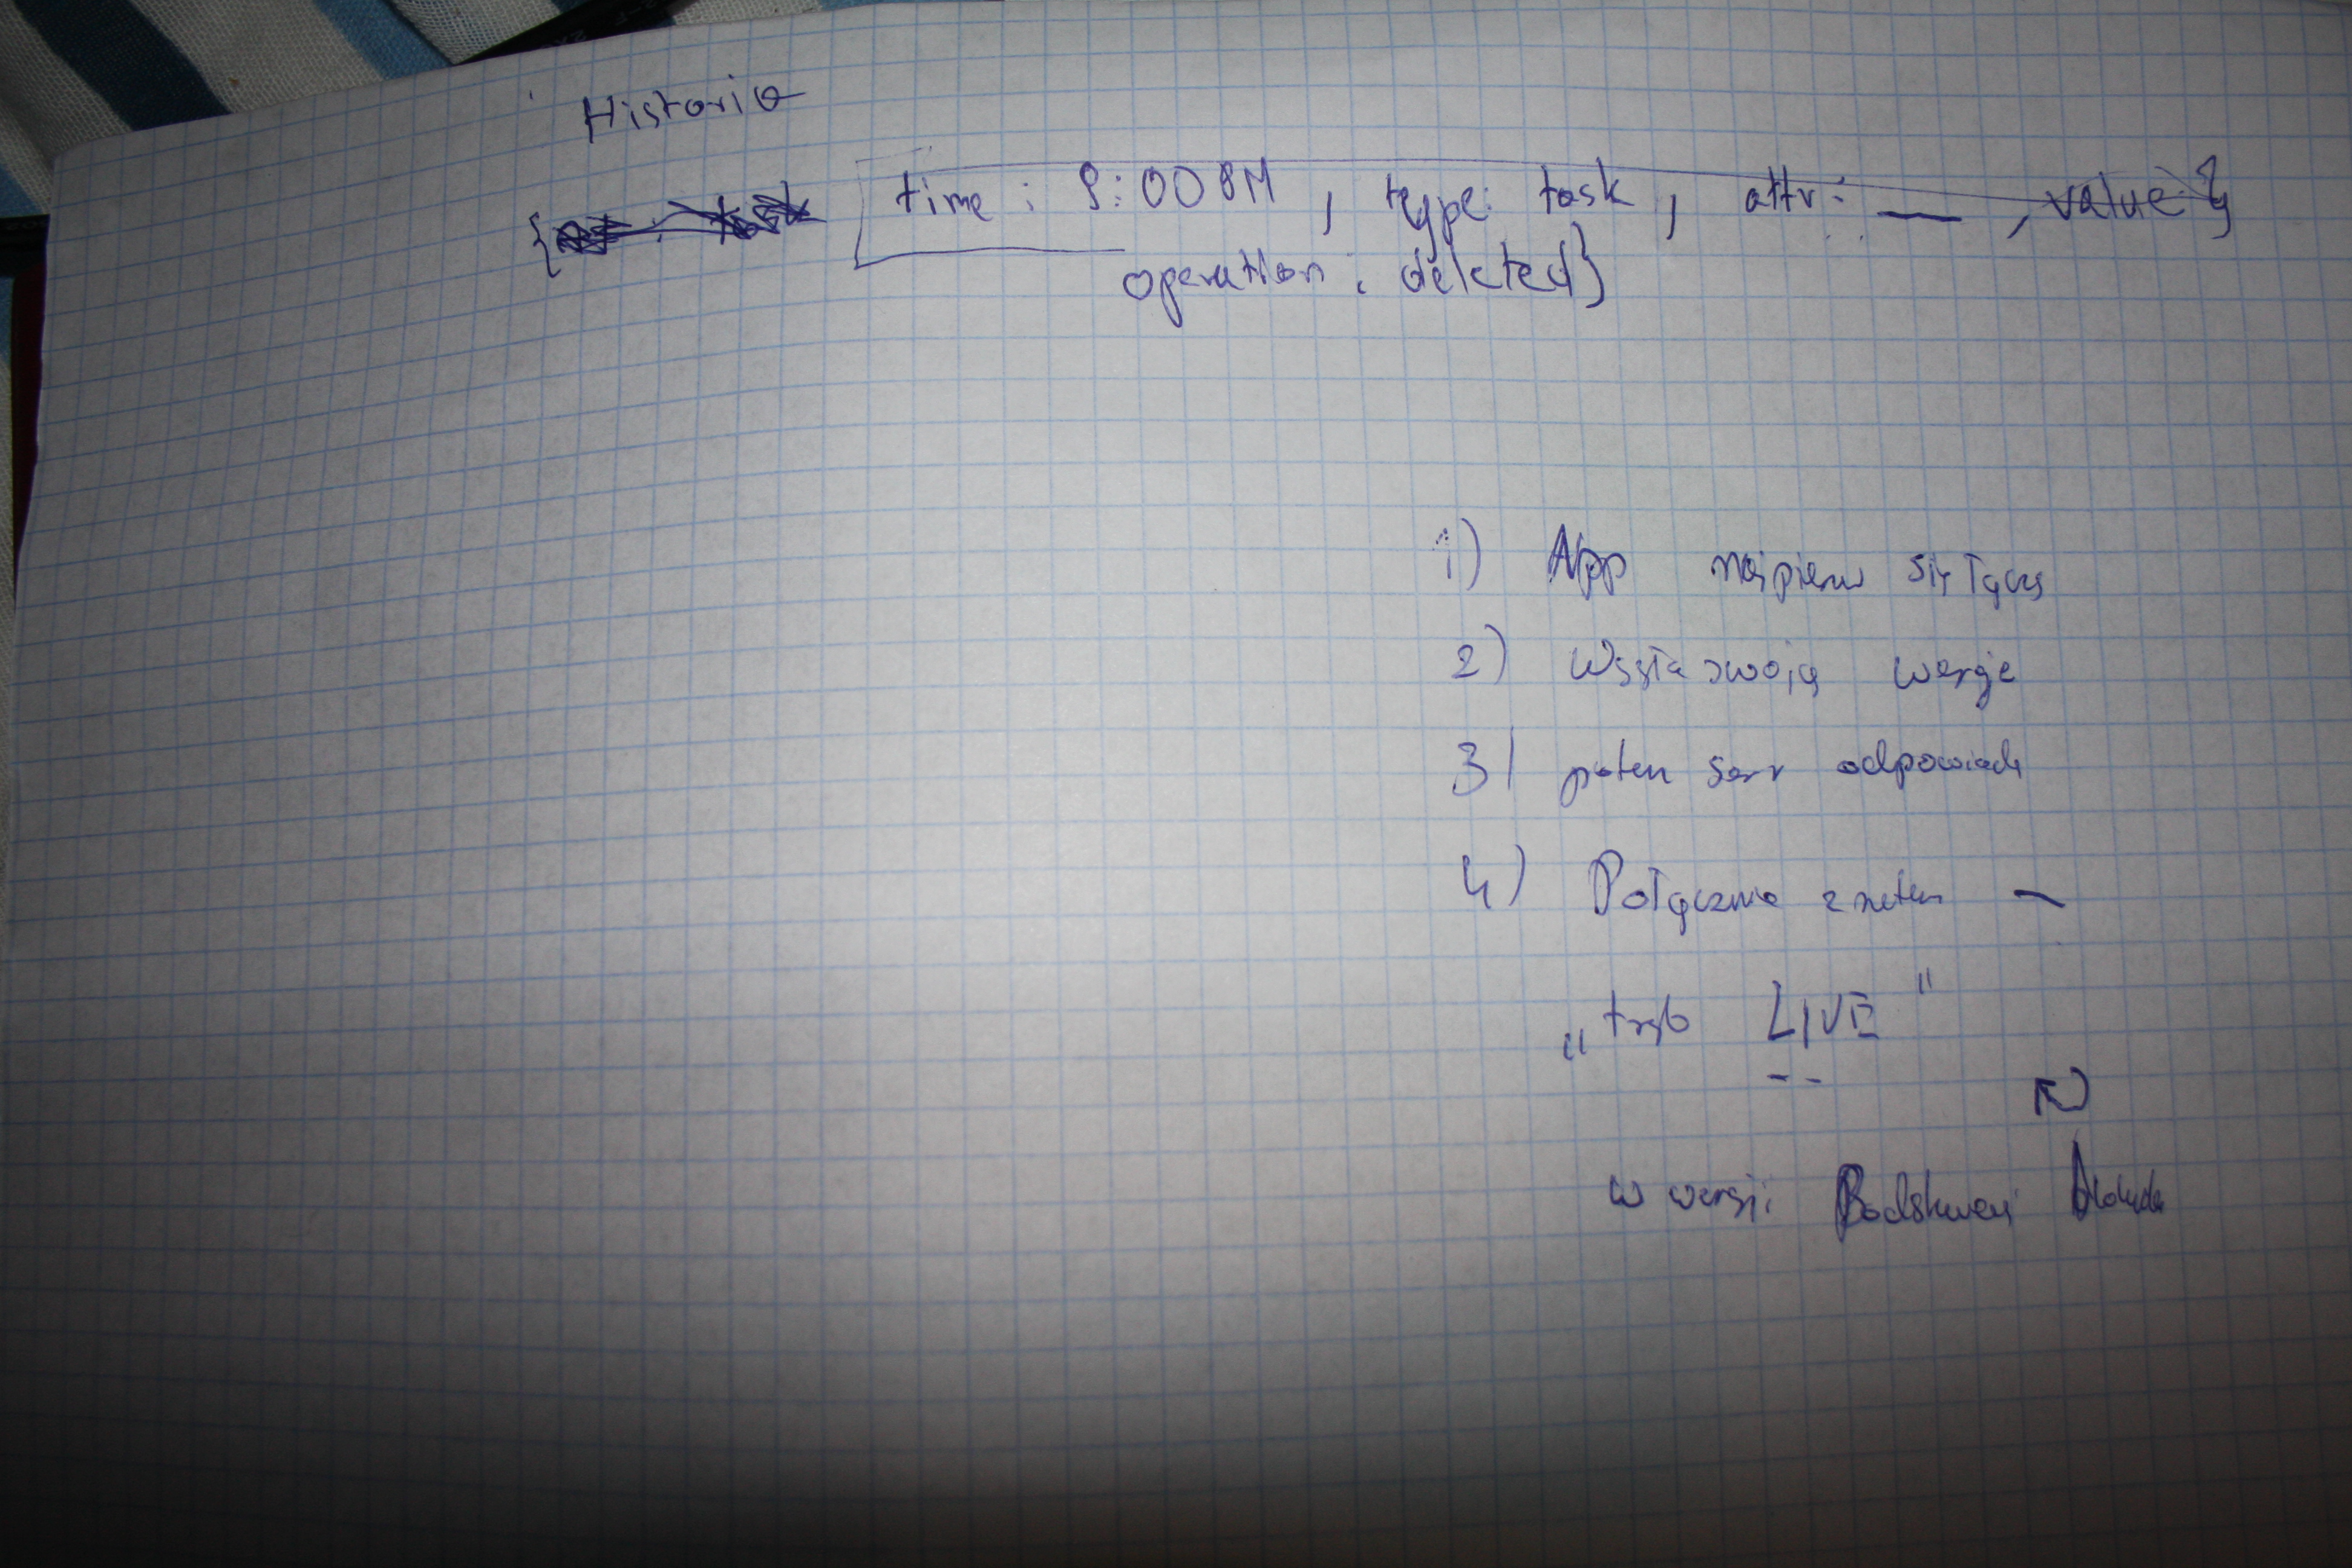 Historia
{ time : 8:00 AM , type: task , attr: — , value: }
operation : deleted }
1) App najpierw się łączy
2) Wysyła swoją wersje
3) potem serw odpowiada
4) Połączenie z netem —
"tryb LIVE"
w wersji